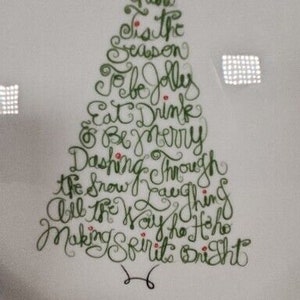 Tis the
Season
To be Jolly
Eat Drink
& Be Merry
Dashing Through
the Snow Laughing
All the Way ho Ho ho
Making Spirits Bright